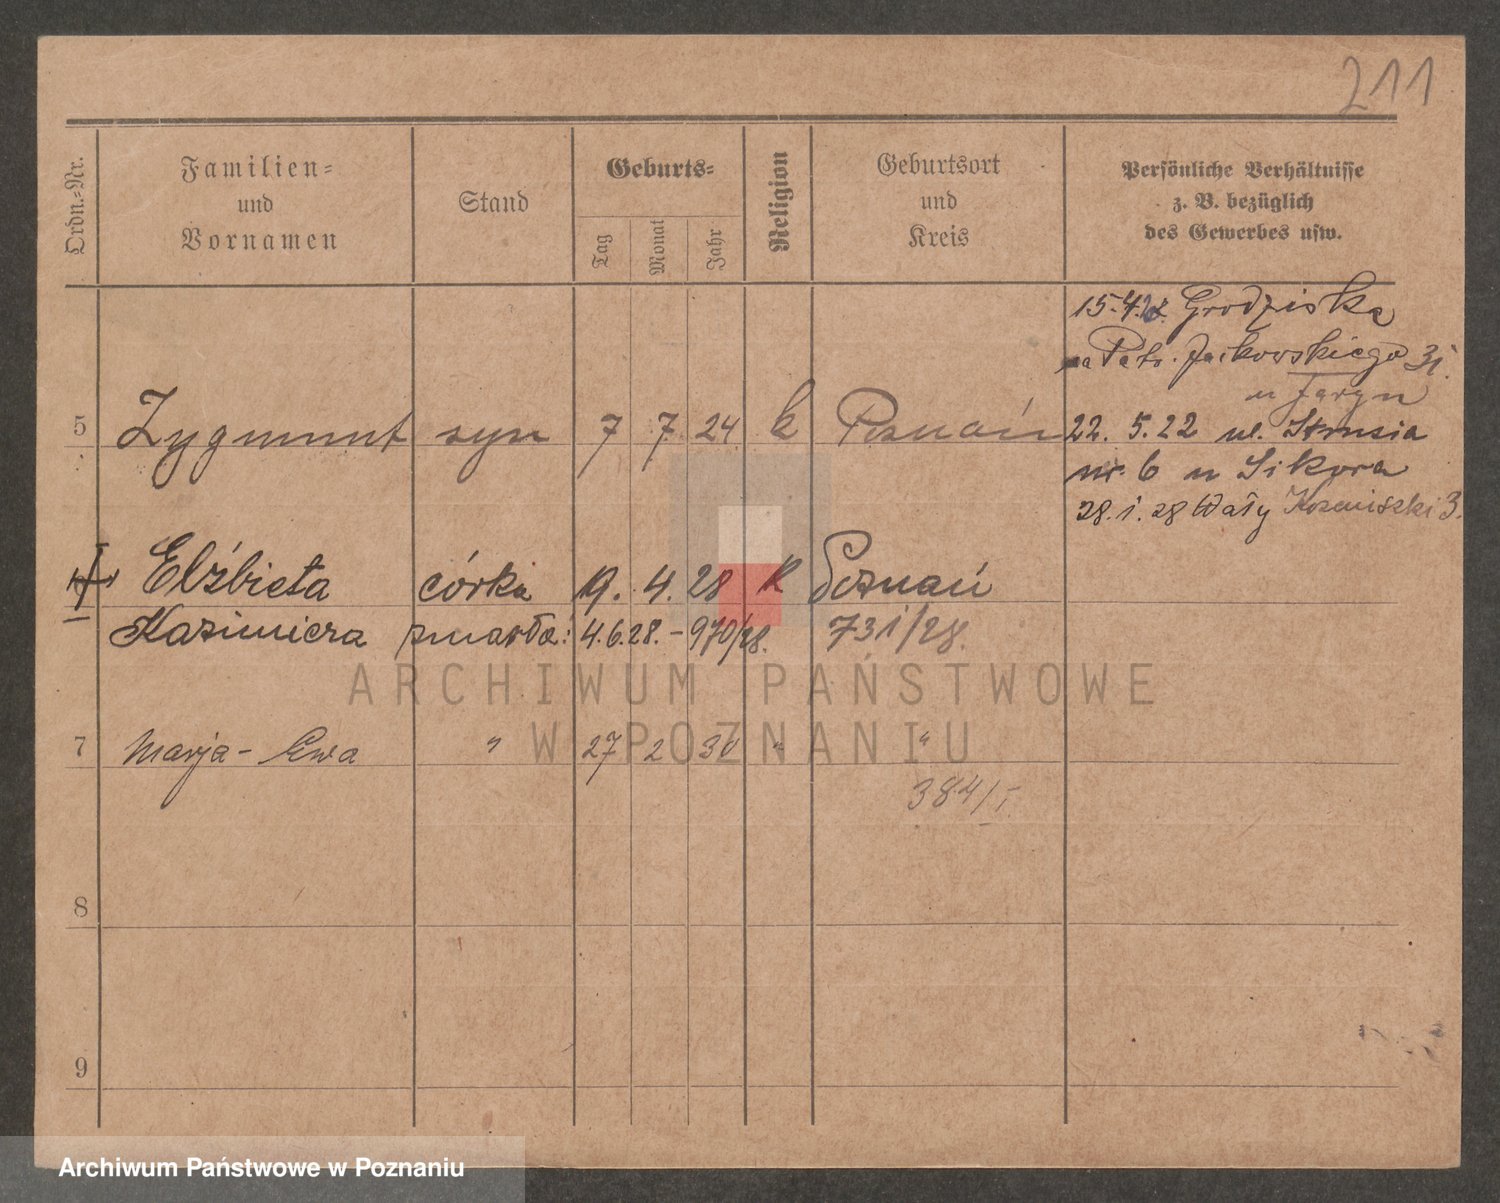 211
Ordn.-Nr.
Familien-
und
Vornamen
Stand
Geburts-
Tag
Monat
Jahr
Religion
Geburtsort
und
Kreis
Persönliche Verhältnisse
z. B. bezüglich
des Gewerbes usw.
15.4. Grodziska
na Patr. Jackowskiego 31.
u Jaryn
5 Zygmunt syn 7 7 24 k Poznań 22. 5. 22 ul. Strusia
nr. 6 u Sikora
28. 1. 28 Wały 3.
Elżbieta córka 19. 4. 28 k Poznań
Kazimiera zmarła: 4.6.28. - 970/28. 731/28.
7 Marja - Ewa " 27 2 30 " "
384/I.
8
9
ARCHIWUM PAŃSTWOWE
W POZNANIU
Archiwum Państwowe w Poznaniu